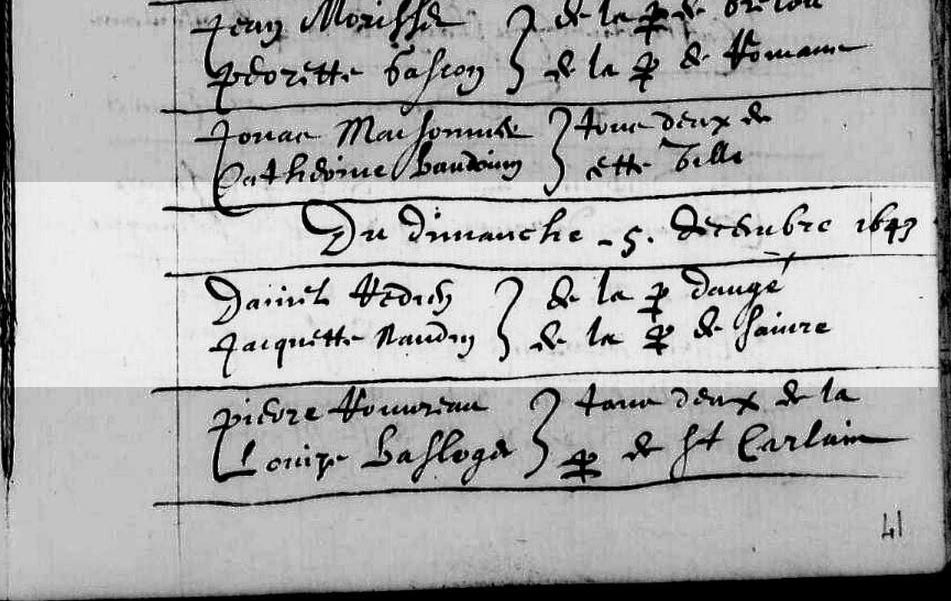 Jean Morisse } de la p de
perrette Gascon } de la p de Romans
Jonas Maisonnide } tous deux de
Catherine Baudouin } cette Ville
Du dimanche - 5. decembre 1643
Daniel Redien } de la p daugé
Jacquette Naudin } de la p de saivre
pierre } tous deux de la
Louize Basloge } p de st Carlain
41